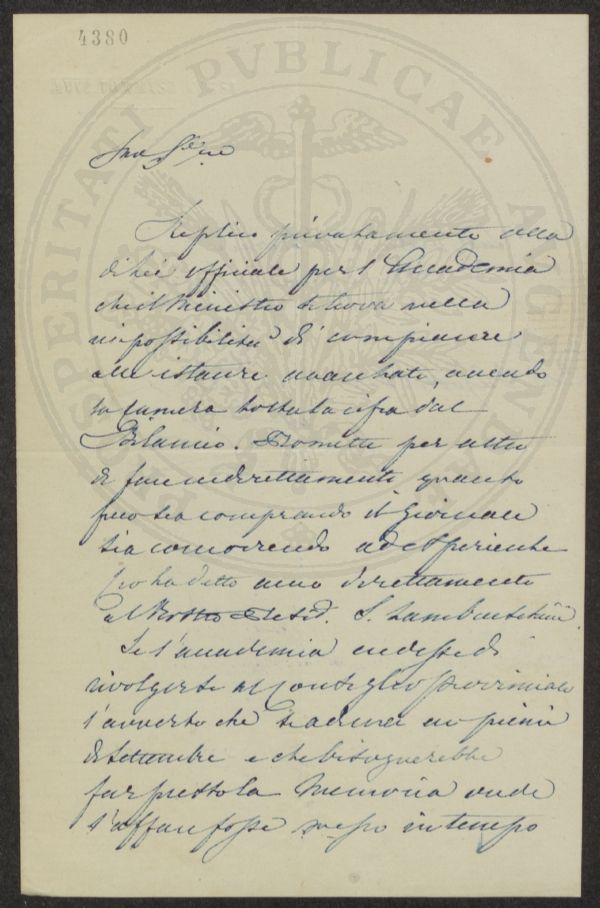 4380
PROSPERITATI PVBLICAE AVGENDAE
Replico privatamente alla
di Lei officiale per l'Accademia
che il Ministro si trova nella
impossibilità di compiacere
alle istanze avanzate, avendo
la Camera tolta la cifra dal
Bilancio. Promette per altro
di fare indirettamente quanto
sia comprando il Giornale
sia concorrendo ad esperienze
ha detto anco direttamente
al Presid. Lambruschini
Se l'accademia credesse di
rivolgersi al Consiglio Provinciale
l'avverto che si aduna ai primi
di Settembre e che bisognerebbe
far presto la Memoria onde
l'affare fosse messo in tempo